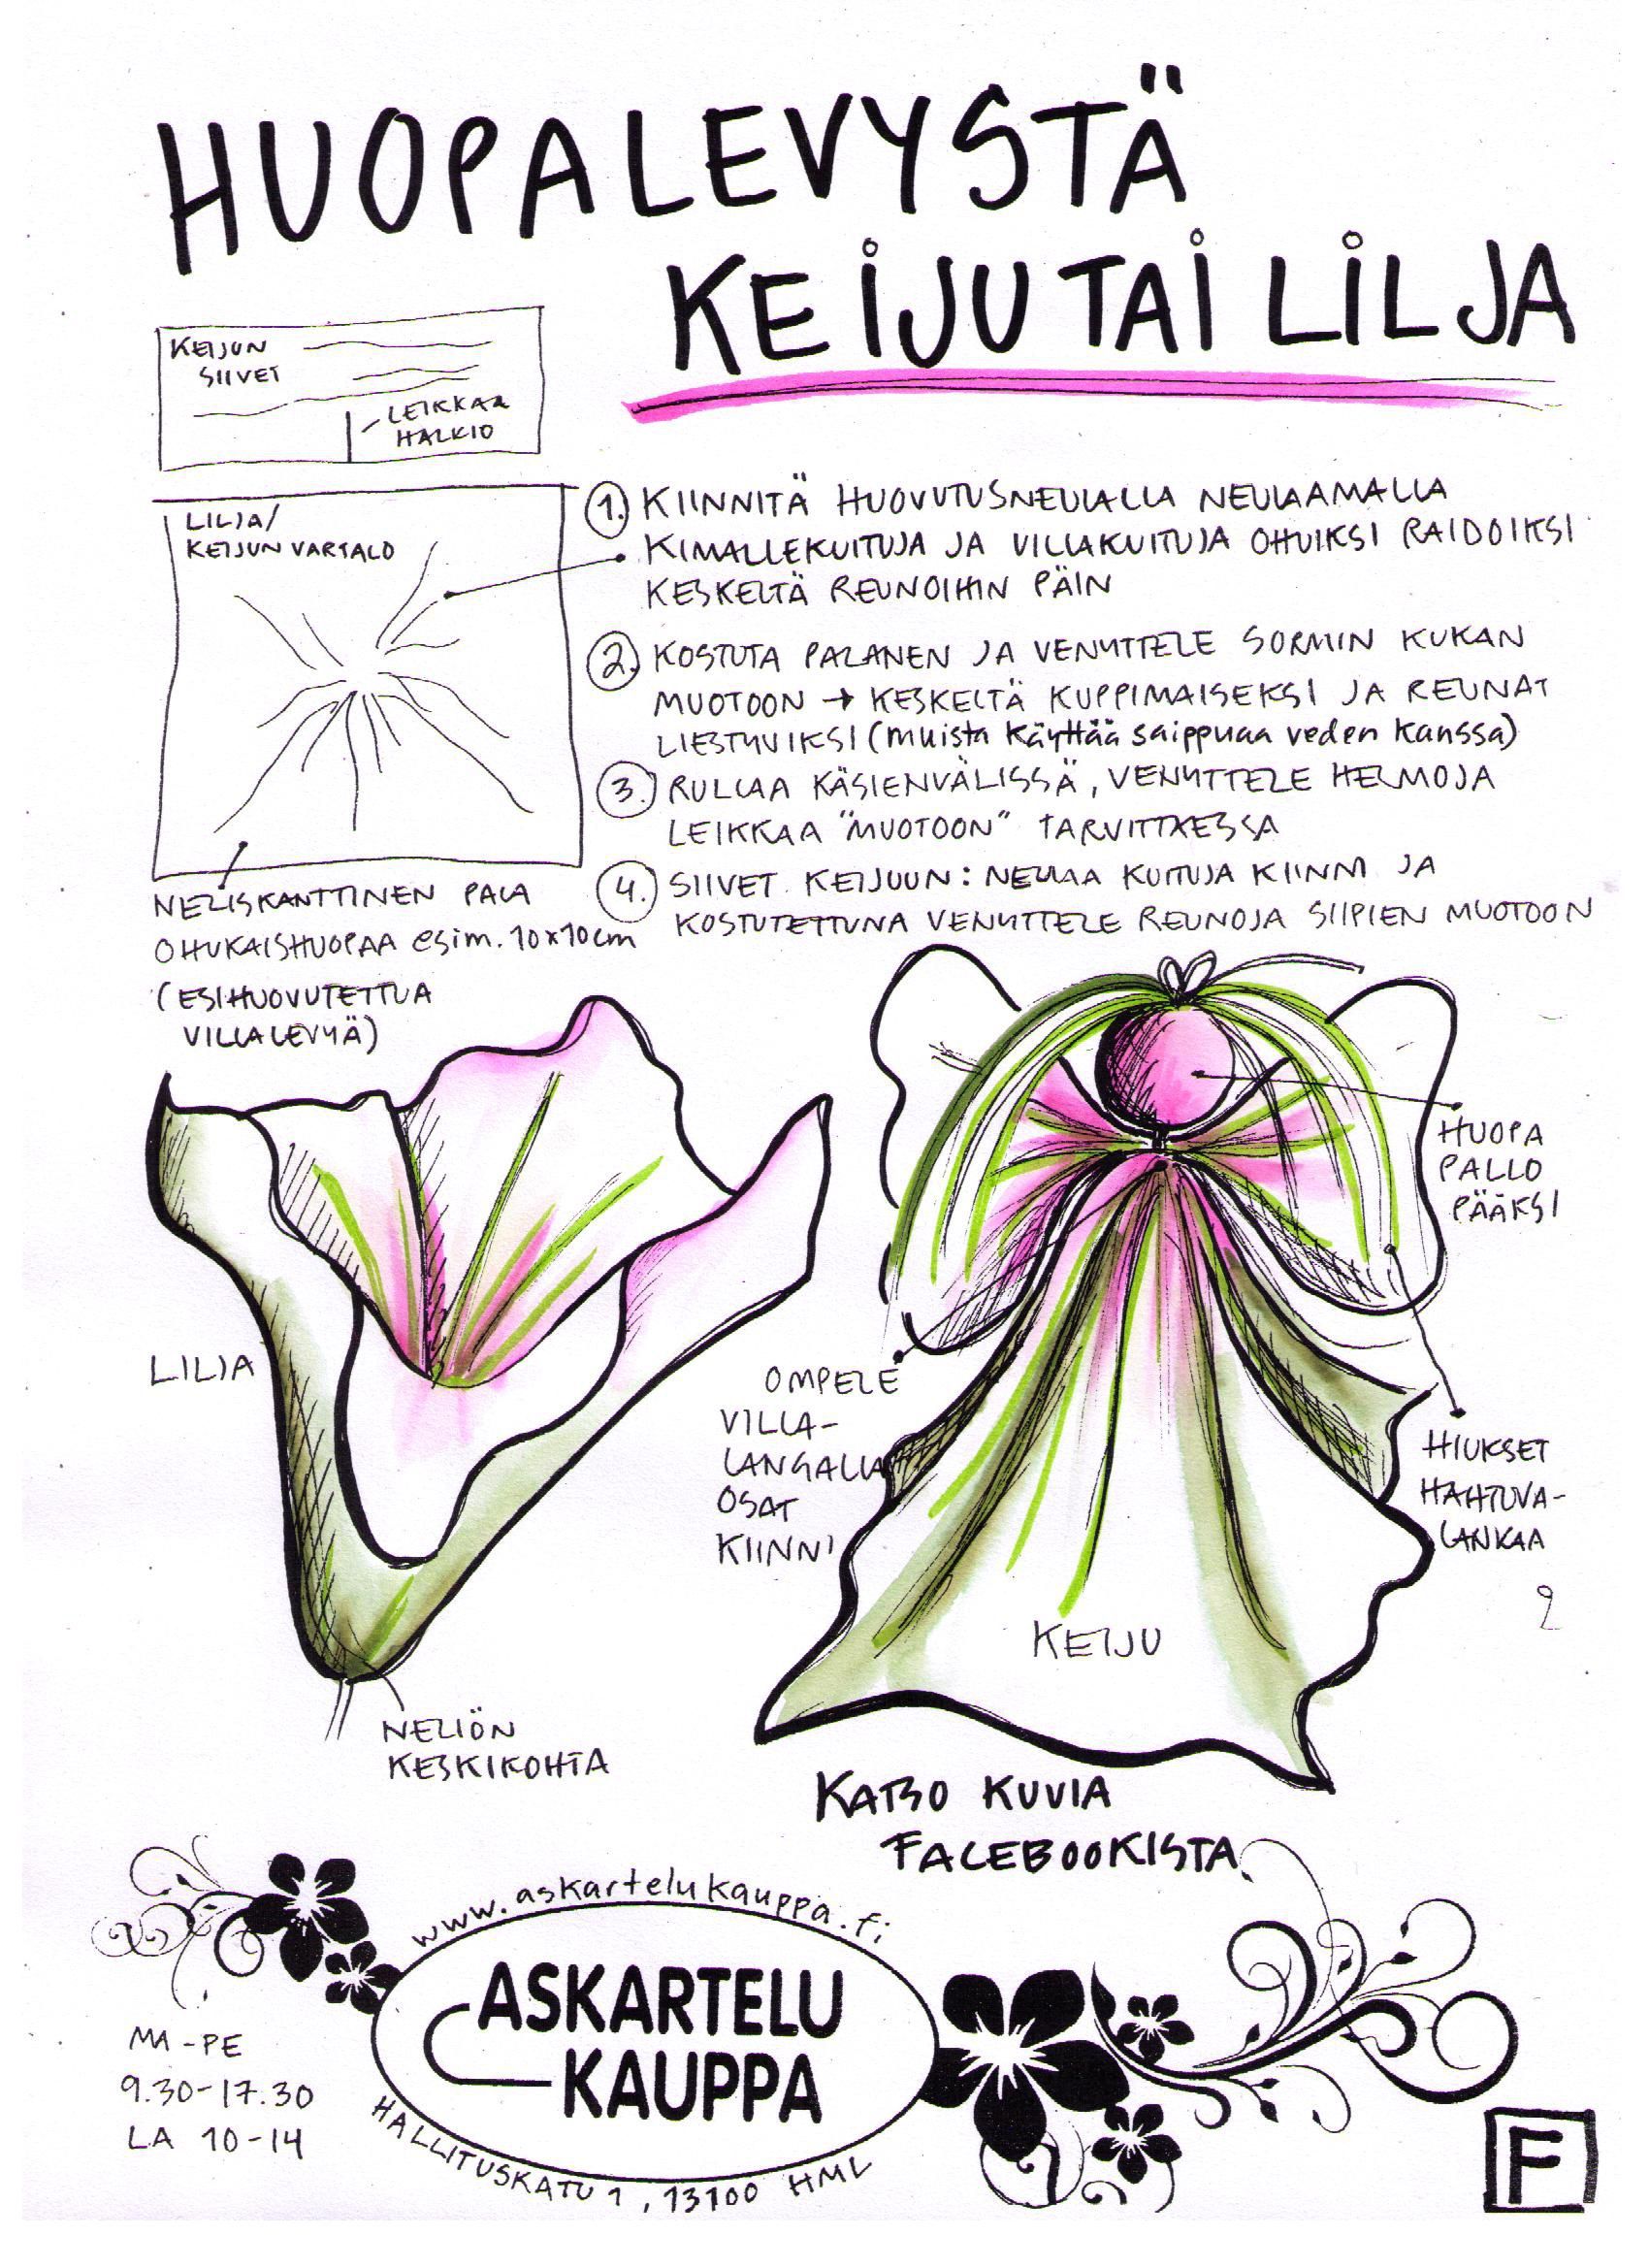 HUOPALEVYSTÄ
KEIJU TAI LILJA
KEIJUN
SIIVET
LEIKKAA
HALKIO
LILJA/
KEIJUN VARTALO
1. KIINNITÄ HUOVUTUSNEULALLA NEULAAMALLA
KIMALLEKUITUJA JA VILLAKUITUJA OHUIKSI RAIDOIKSI
KESKELTÄ REUNOIHIN PÄIN
2. KOSTUTA PALANEN JA VENYTTELE SORMIN KUKAN
MUOTOON → KESKELTÄ KUPPIMAISEKSI JA REUNAT
LIESTYVIKSI (muista käyttää saippuaa veden kanssa)
3. RULLAA KÄSIENVÄLISSÄ, VENYTTELE HELMOJA
LEIKKAA "MUOTOON" TARVITTAESSA
4. SIIVET KEIJUUN: NEULAA KUITUJA KIINNI JA
KOSTUTETTUNA VENYTTELE REUNOJA SIIPIEN MUOTOON
NELISKANTTINEN PALA
OHUKAISHUOPAA esim. 10x10cm
(ESIHUOVUTETTUA
VILLALEVYÄ)
HUOPA
PALLO
PÄÄKSI
LILJA
OMPELE
VILLA-
LANGALLA
OSAT
KIINNI
HIUKSET
HAHTUVA-
LANKAA
KEIJU
NELIÖN
KESKIKOHTA
KATSO KUVIA
FACEBOOKISTA
www.askartelukauppa.fi
ASKARTELU
KAUPPA
HALLITUSKATU 1, 13100 HML
MA-PE
9.30-17.30
LA 10-14
F